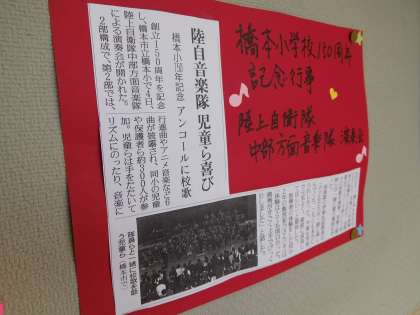 橋本小学校150周年
記念行事
陸上自衛隊
中部方面音楽隊 演奏会
陸自音楽隊 児童ら喜び
橋本小150年記念 アンコールに校歌
創立150周年を記念
し、橋本市立橋本小で4日、
陸上自衛隊中部方面音楽隊
による演奏会が開かれた。
2部構成で、第2部では、
行進曲やアニメ音楽など8
曲が披露され、同小の児童
や保護者ら約300人が参
加。児童らは手をたたいて
リズムにのったり、音楽に
隊員らと一緒に校歌を歌
う児童ら(橋本市で)